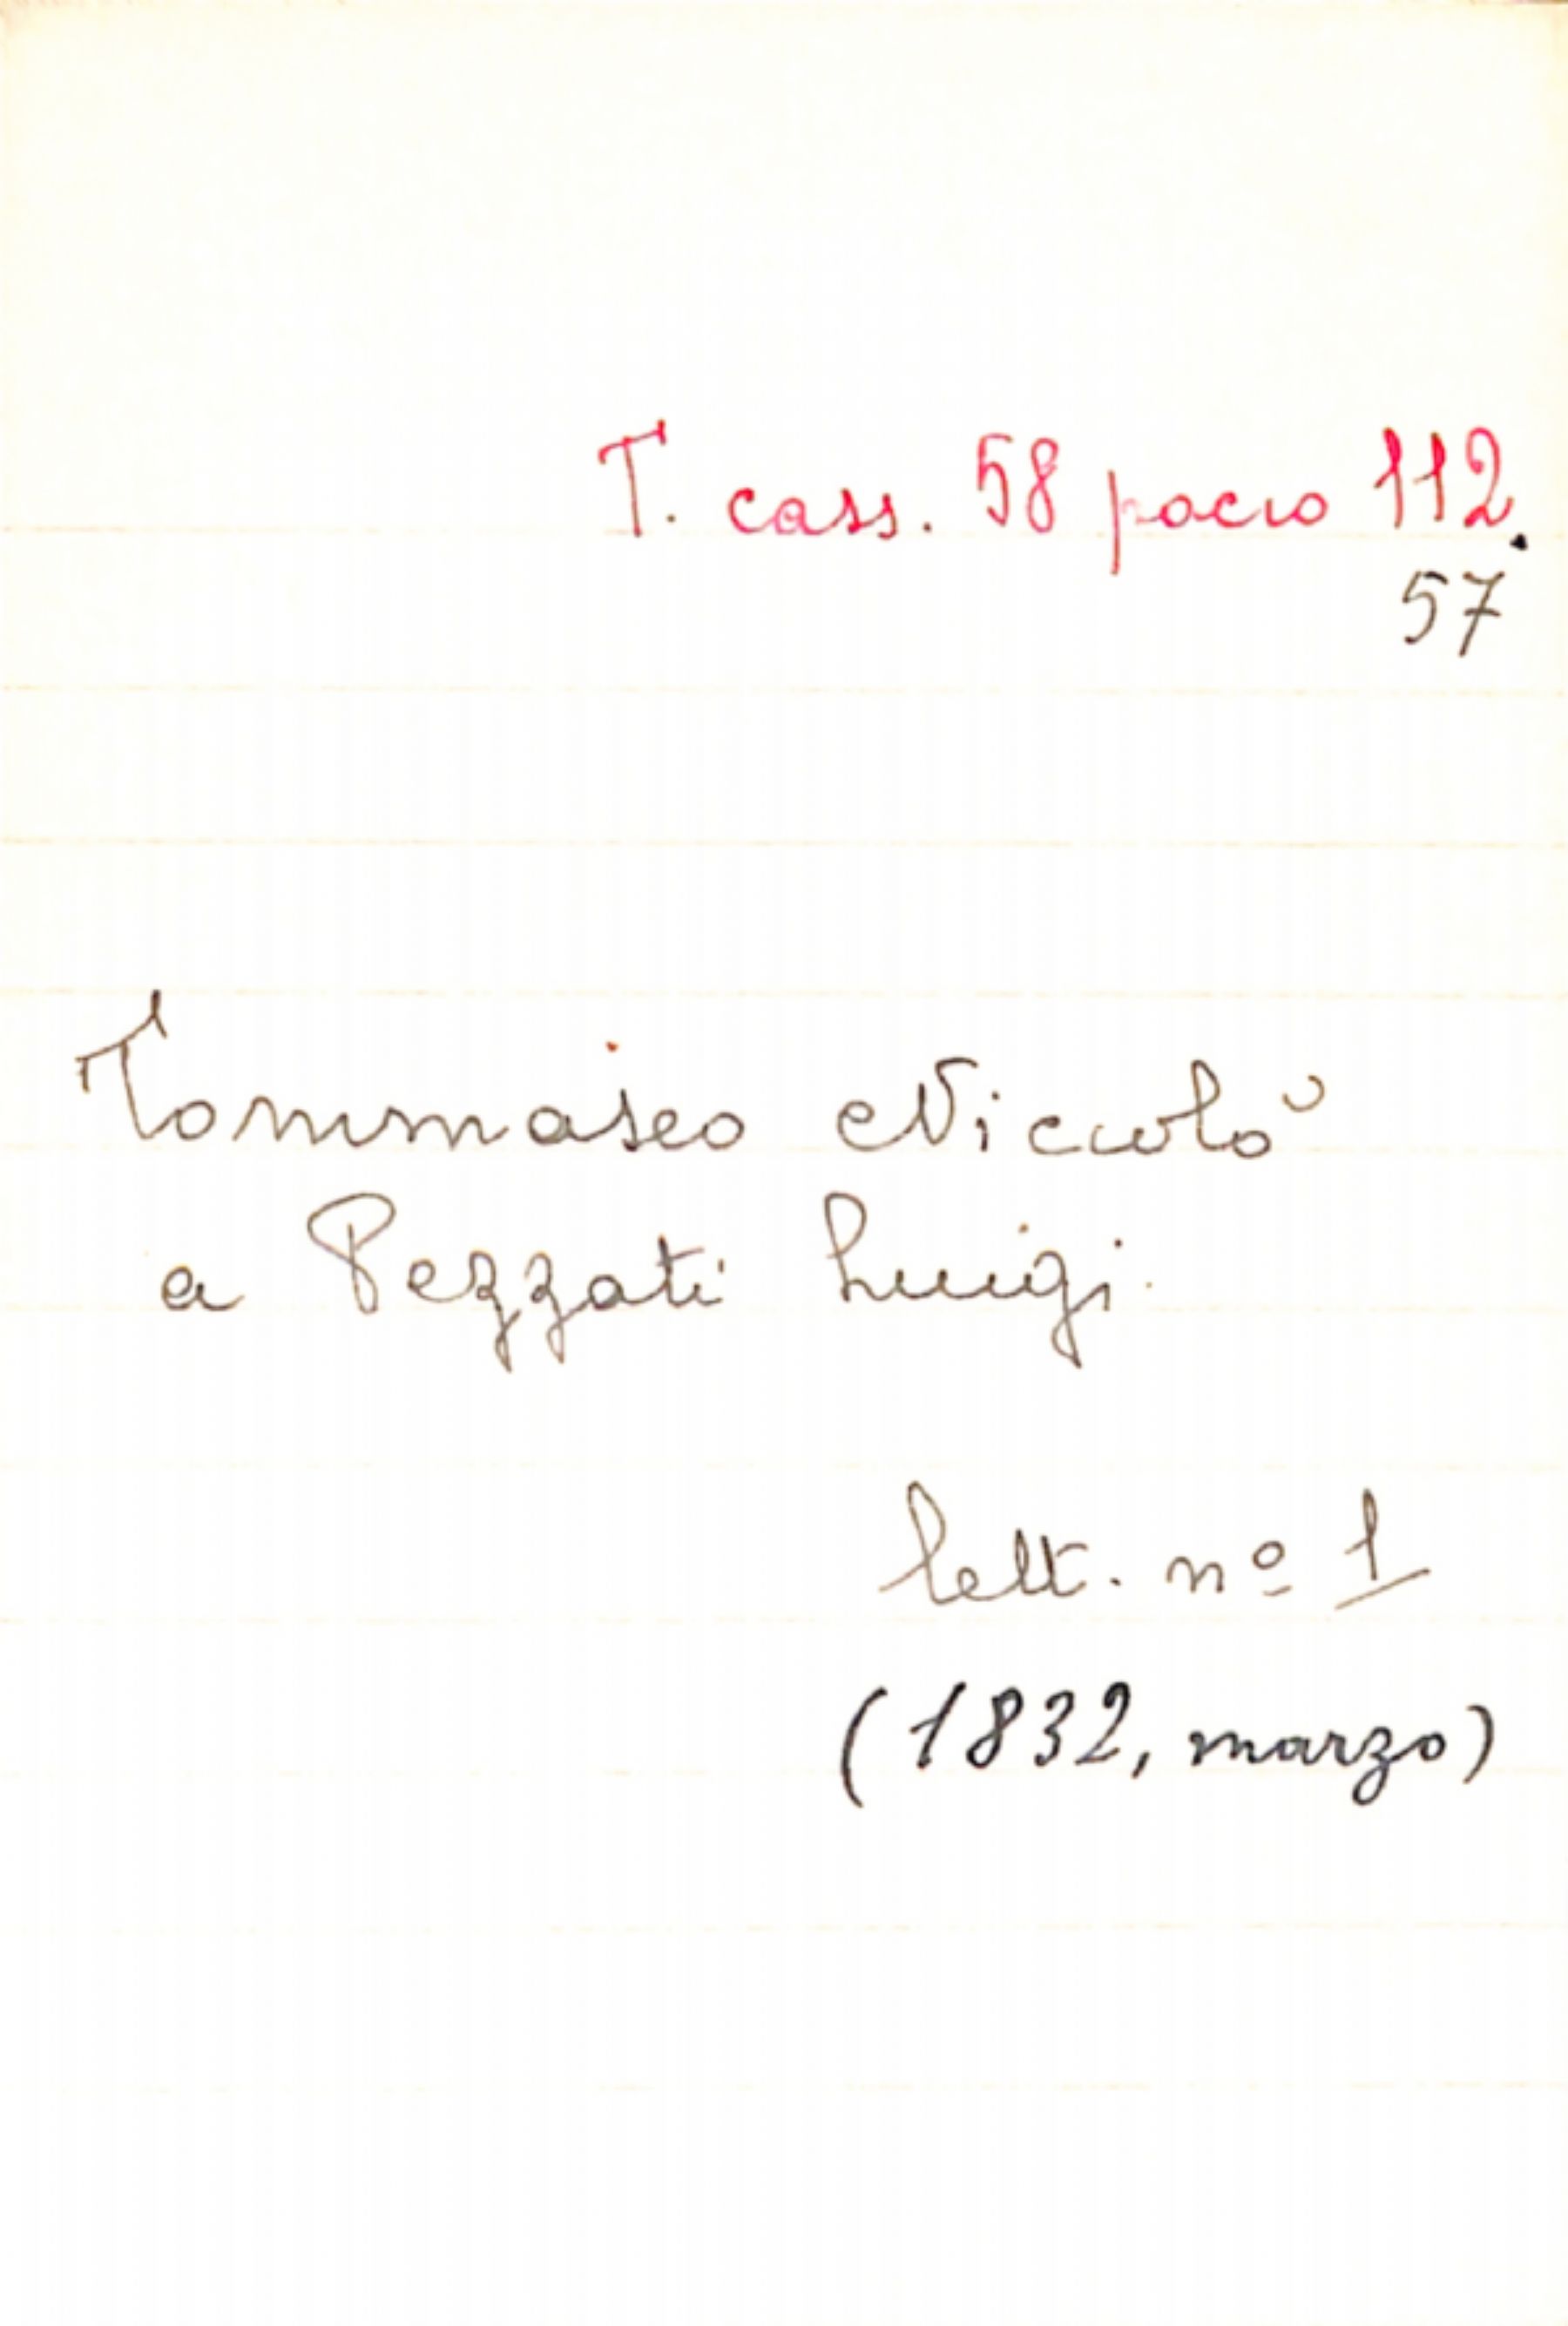 T. cass. 58 pacco 112.
57
Tommaseo Niccolò
a Pezzati Luigi.
lett. nº 1
(1832, marzo)